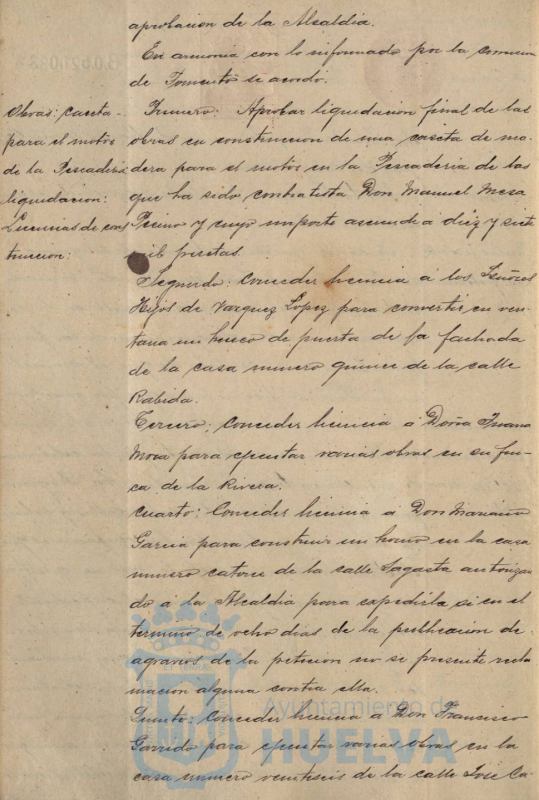 aprobacion de la Alcaldia.
En armonia con lo informado por la comision
de Fomento se acordó.
Obras: caseta
para el motor
de la Pescaderia
liquidacion:
Licencias de cons
truccion:
Primero: Aprobar liquidacion final de las
obras en construccion de una caseta de ma-
dera para el motor en la Pescaderia de las
que ha sido contratista Don Manuel Mesa
y cuyo importe asciende á diez y siete
mil pesetas.
Segundo: Conceder licencia á los Señores
Hijos de Vazquez Lopez para convertir en ven-
tana un hueco de puerta de la fachada
de la casa numero quince de la calle
Rabida.
Tercero: Conceder licencia á Doña Juana
Mora para ejecutar varias obras en su fin-
ca de la Rivera.
Cuarto: Conceder licencia á Don Mariano
Garcia para construir un horno en la casa
numero catorce de la calle Sagasta autorizan
do á la Alcaldia para expedirla si en el
termino de ocho dias de la publicacion de
agravios de la peticion no se presente recla
macion alguna contra ella.
Quinto: Conceder licencia á Don Francisco
Garrido para ejecutar varias obras en la
casa numero veintiseis de la calle Jose Ca-
Ayuntamiento de
HUELVA